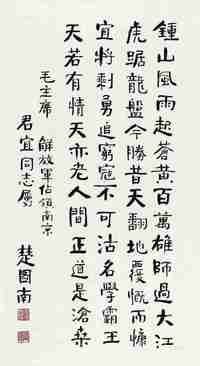 鍾山風雨起蒼黃百萬雄師過大江
虎踞龍盤今勝昔天翻地覆慨而慷
宜將剩勇追窮寇不可沽名學霸王
天若有情天亦老人間正道是滄桑
毛主席 解放軍佔領南京
君宜同志屬
楚圖南